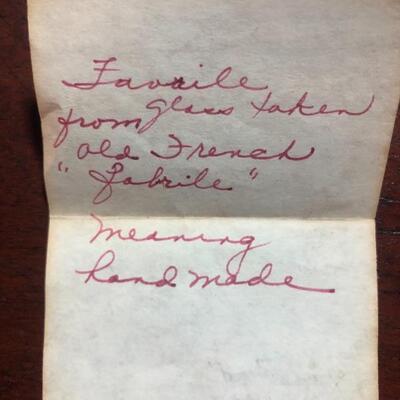 Favrile
glass taken
from
"Old French
"fabrile"
meaning
hand made